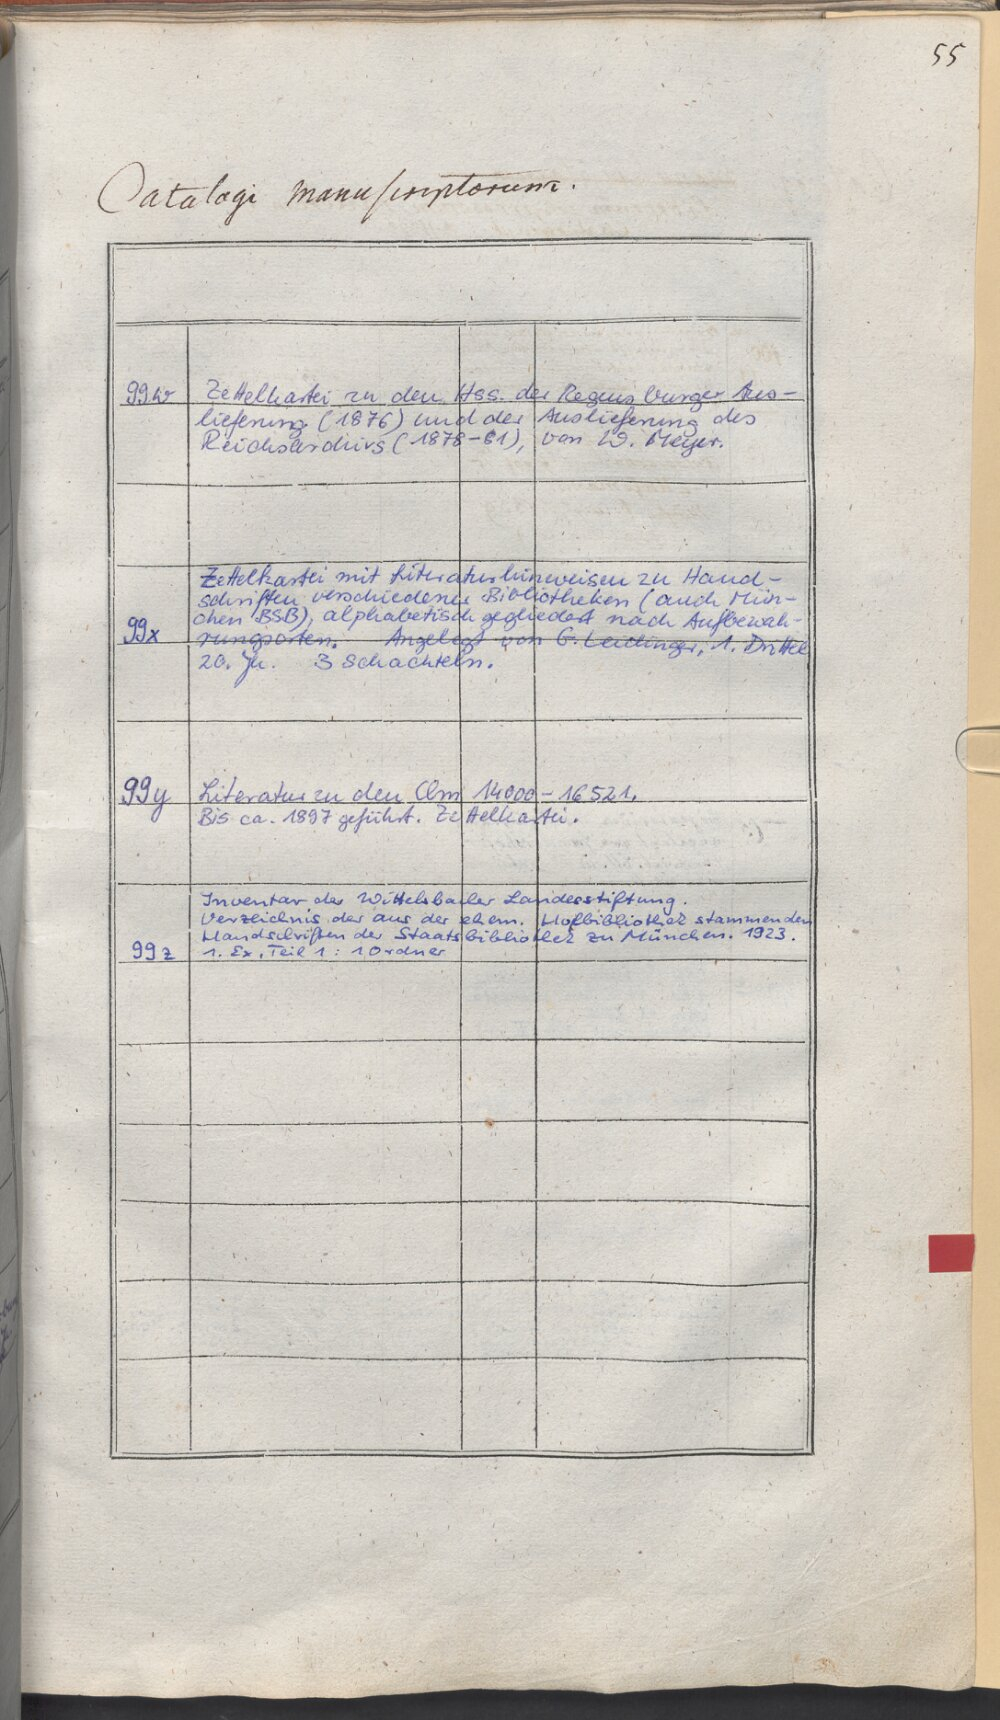 55
Catalogi manuscriptorum.
99w Zettelkartei zu den Hss. der Regensburger Aus-
lieferung (1876) und der Auslieferung des
Reichsarchivs (1878-81), von W. Meyer.
Zettelkartei mit Literaturhinweisen zu Hand-
schriften verschiedener Bibliotheken (auch Mün-
chen BSB), alphabetisch gegliedert nach Aufbewah-
99x rungsorten. Angelegt von G. Leidinger, 1. Drittel
20. Jh. 3 Schachteln.
99y Literatur zu den Clm 14000-16521.
Bis ca. 1897 geführt. Zettelkartei.
Inventar der Wittelsbacher Landesstiftung.
Verzeichnis der aus der ehem. Hofbibliothek stammenden
Handschriften der Staatsbibliothek zu München. 1923.
99z 1. Ex. Teil 1: 1 Ordner